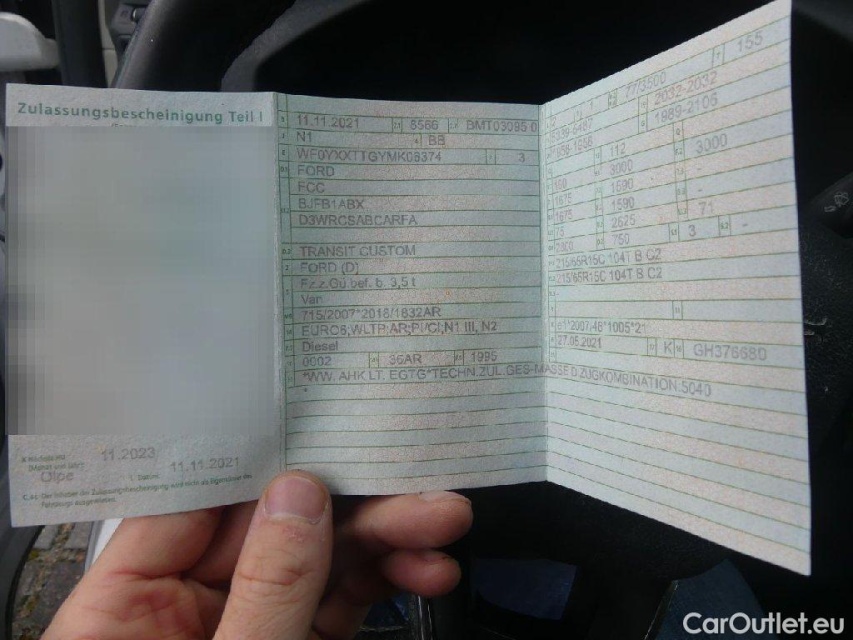 Zulassungsbescheinigung Teil I
11.2023
Olpe
11.11.2021
11.11.2021 8566 BMT03095 0
N1 BB
WF0YXXTTGYMK08374 3
FORD
FCC
BJFB1ABX
D3WRCSABCARFA
TRANSIT CUSTOM
FORD (D)
Fz.z.Gü bef. b. 3,5 t
Van
715/2007*2018/1832AR
EURO6;WLTP;AR;PI/CI;N1 III, N2
Diesel
0002 36AR 1995
*WW. AHK LT. EGTG*TECHN.ZUL.GES-MASSE D.ZUGKOMBINATION:5040
77/3500 155
2032-2032
1989-2106
112
3000 3000
1590
1675 1590
75 2525 71
750 3 -
215/65R15C 104T B C2
215/65R15C 104T B C2
e1*2007/46*1005*21
27.05.2021 K GH376680
CarOutlet.eu